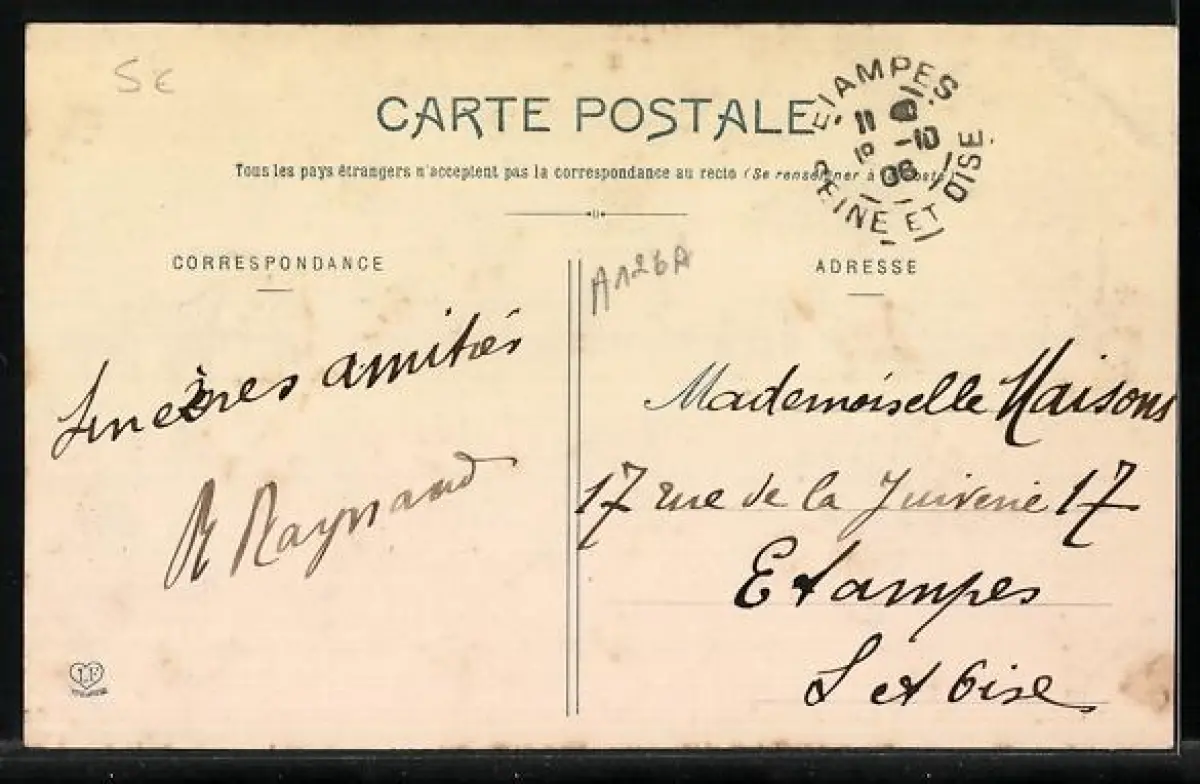 5€
CARTE POSTALE
Tous les pays étrangers n'acceptent pas la correspondance au recto (Se renseigner à la Poste)
ETAMPES
11
-10
08
SEINE ET OISE
CORRESPONDANCE
A126A
ADRESSE
Sincères amitiés
R Raynaud
Mademoiselle Maisons
17 rue de la Juiverie 17
Etampes
S et Oise
LF